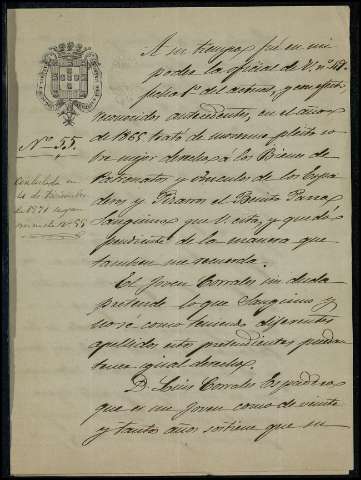 A su tiempo fué en mi
poder la oficial de V. nº 48
fecha 1º del actual, y en efecto
recuerdos antecedentes, en el año
de 1865 trató de moverse pleito so
bre mejor derecho a los Bienes de
Patronatos y Vinculos de los Espa
deros y Pizarro el Benito Parra
Sanguino que V. cita, y quedó
pendiente de la manera que
tambien me recuerda.
El Joven Corrales sin duda
pretende lo que Sanguino y
no se como teniendo diferentes
apellidos estos pretendientes puedan
tener igual derecho.
D. Luis Corrales Espadero
que es un Joven como de veinte
y tantos años sostiene que su
Nº 55.
Contestada en
de Diciembre
de 1871 segun
minuta nº 55